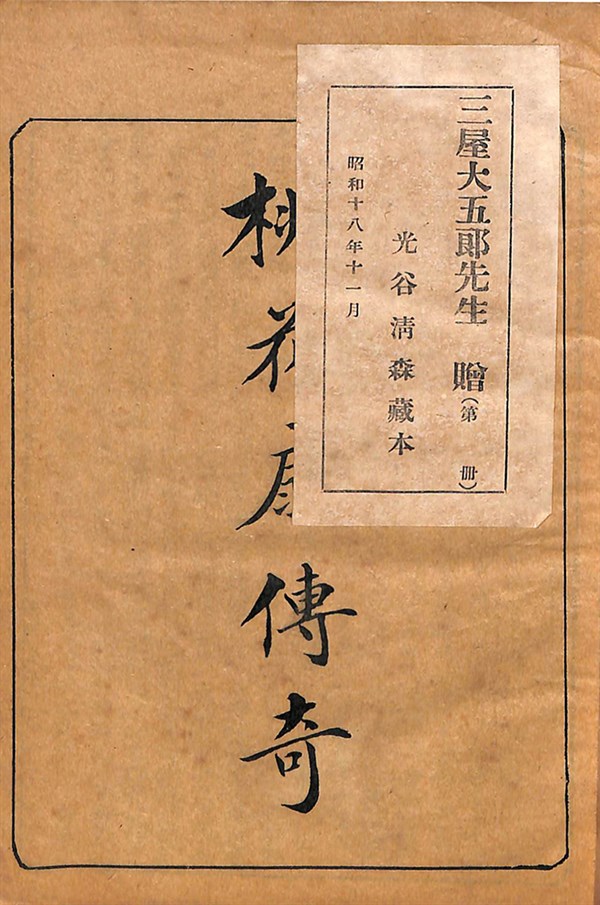 三屋大五郎先生 贈(第 冊)
光谷清森藏本
昭和十八年十一月
桃花扇傳奇